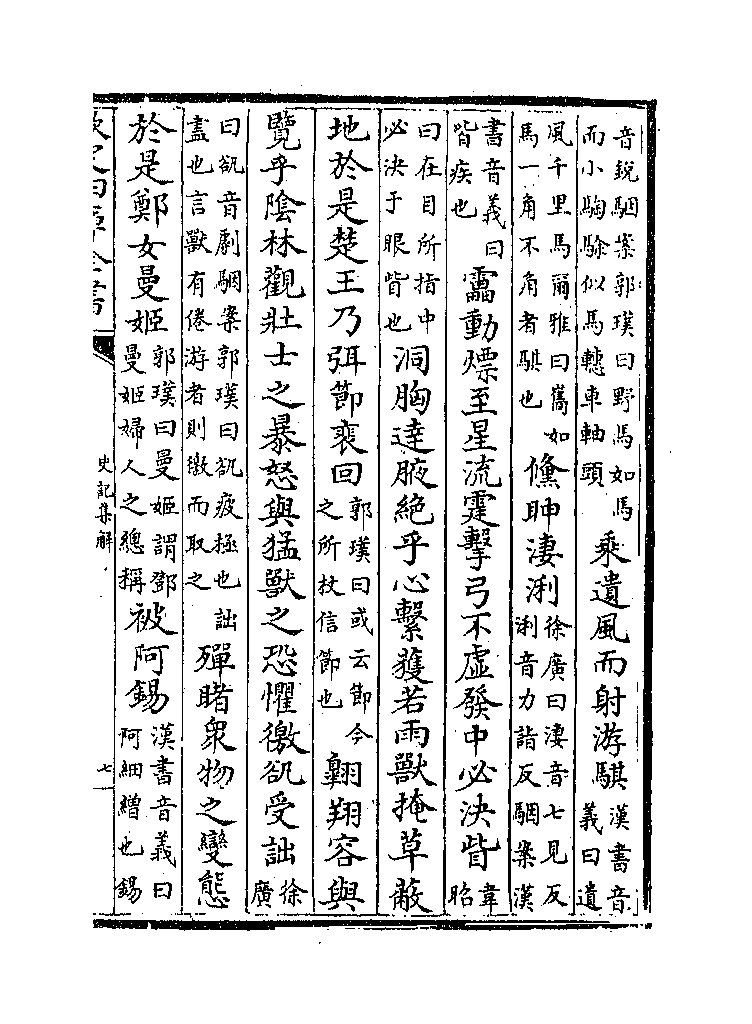 音鋭駰案郭璞曰野馬如馬而小騊駼似馬轊車軸頭乘遺風而射游騏漢書音義曰遺
風千里馬爾雅曰巂如馬一角不角者騏也儵眒淒浰徐廣曰淒音七見反浰音力詣反駰案漢
書音義曰皆疾也靁動熛至星流霆擊弓不虛發中必決眥韋昭
曰在目所指中必決于眼眥也洞胸達腋絕乎心繫獲若雨獸掩草蔽
地於是楚王乃弭節裵回郭璞曰或云節今之所杖信節也翱翔容與
覽乎陰林觀壯士之暴怒與猛獸之恐懼徼谻受詘徐廣
曰谻音劇駰案郭璞曰谻疲極也詘盡也言獸有倦游者則徼而取之殫睹衆物之變態
於是鄭女曼姬郭璞曰曼姬謂鄧曼姬婦人之總稱被阿錫漢書音義曰阿細繒也錫
史記集解
七